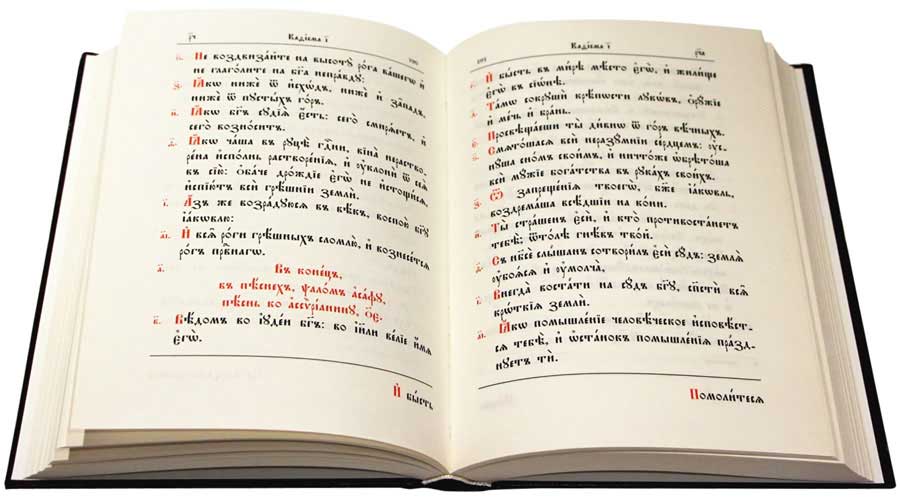 р҃ч Каѳі́сма і҃ 190
є҃. Не воздвиза́йте на высотꙋ̀ ро́га ва́шегѡ и҆
не глаго́лите на бг҃а непра́вдꙋ:
ѕ҃. Ꙗ҆́кѡ нижѐ ѿ и҆схѡ́дъ, нижѐ ѿ за́падъ,
нижѐ ѿ пꙋсты́хъ го́ръ.
з҃. Ꙗ҆́кѡ бг҃ъ сꙋдїѧ̀ є҆́сть: сего̀ смирѧ́етъ, и҆
сего̀ возно́ситъ.
и҃. Ꙗ҆́кѡ ча́ша въ рꙋцѣ̀ гдⷭ҇ни, вїна̀ нераство-
ре́на и҆спо́лнь растворе́нїѧ, и҆ ᲂу҆клонѝ ѿ сеѧ̀
въ сїю̀: ѻ҆ба́че дро́ждїе є҆гѡ̀ не и҆стощи́сѧ,
и҆спїю́тъ всѝ грѣ́шнїи землѝ.
і҃. А҆́зъ же возра́дꙋюсѧ въ вѣ́къ, воспою̀ бг҃ꙋ
і҆а́кѡвлю:
а҃і. И҆ всѧ̑ ро́ги грѣ́шныхъ сломлю̀, и҆ вознесе́тсѧ
ро́гъ првⷣнагѡ.
а҃. Въ коне́цъ,
въ пѣ́снехъ, ѱало́мъ а҆са́фꙋ,
пѣ́снь ко а҆ссѷрїа́нинꙋ, о҃е.
в҃. Вѣ́домъ во і҆ꙋде́и бг҃ъ: во і҆и҃ли ве́лїе и҆́мѧ
є҆гѡ̀.
И҆ бы́сть
191 Каѳі́сма і҃ рч҃а
г҃. И҆ бы́сть въ ми́рѣ мѣ́сто є҆гѡ̀, и҆ жили́ще
є҆гѡ̀ въ сїѡ́нѣ.
д҃. Та́мѡ сокрꙋшѝ крѣ́пѡсти лꙋкѡ́въ, ѻ҆рꙋ́жїе
и҆ ме́чь и҆ бра́нь.
є҃. Просвѣща́еши ты̀ ди́внѡ ѿ го́ръ вѣ́чныхъ.
ѕ҃. Смѧто́шасѧ всѝ неразꙋ́мнїи се́рдцемъ: ᲂу҆с-
нꙋ́ша сно́мъ свои́мъ, и҆ ничто́же ѡ҆брѣто́ша
всѝ мꙋ́жїе бога́тства въ рꙋка́хъ свои́хъ.
з҃. Ѿ запреще́нїѧ твоегѡ̀, бж҃е і҆а́кѡвль,
воздрема́ша всѣ́дшїи на ко́ни.
и҃. Ты̀ стра́шенъ є҆сѝ, и҆ кто̀ противоста́нетъ
тебѣ̀; ѿто́лѣ гнѣ́въ тво́й.
ѳ҃. Съ нб҃сѐ слы́шанъ сотвори́лъ є҆сѝ сꙋ́дъ: землѧ̀
ᲂу҆боѧ́сѧ и҆ ᲂу҆молча̀,
і҃. Внегда̀ воста́ти на сꙋ́дъ бг҃ꙋ, спⷭ҇тѝ всѧ̑
крѡ́ткїѧ землѝ.
а҃і. Ꙗ҆́кѡ помышле́нїе человѣ́ческое и҆сповѣ́ст-
сѧ тебѣ̀, и҆ ѡ҆ста́нокъ помышле́нїѧ пра́зд-
нꙋетъ тѝ.
Помоли́тесѧ